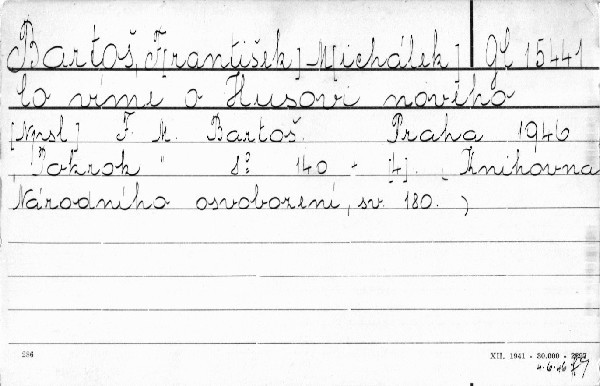 Bartoš, F[rantišek] M[ichálek] Gl 15441
Co víme o Husovi nového
[Npsl] F. M. Bartoš. Praha 1946
"Pokrok" 8° 140 - [4]. (Knihovna
Národního osvobození, sv. 180.)
286 XII. 1941 - 30.000 - 2897
4.6.46